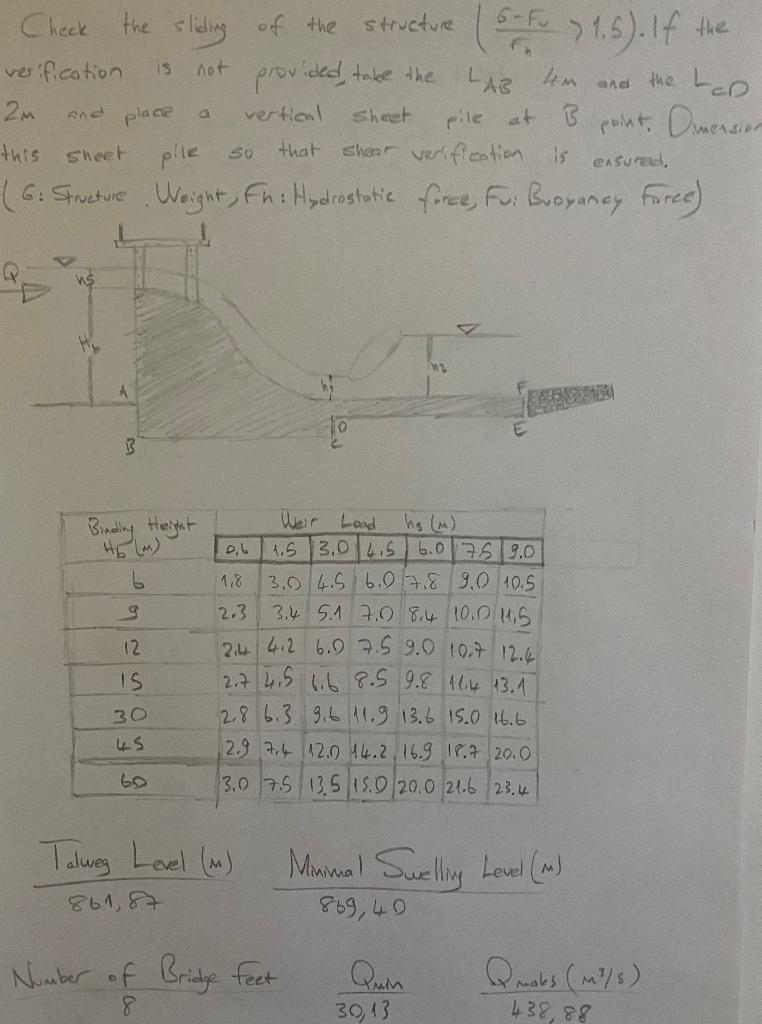 Check the sliding of the structure (G-Fu/Fh > 1.5). If the
verification is not provided, take the LAB 4m and the LCD
2m and place a vertical sheet pile at B point. Dimension
this sheet pile so that shear verification is ensured.
(G: Structure Weight, Fh: Hydrostatic force, Fu: Buoyancy Force)
Q hs
Hb h1 h2
A F
D
B C E
Binding Height Hb (m) Weir Load hs (m)
0,6 1.5 3.0 4,5 6.0 7.5 9.0
6 1.8 3.0 4.5 6.0 7.8 9.0 10.5
9 2.3 3.4 5.1 7.0 8.4 10.0 11,5
12 2.4 4.2 6.0 7.5 9.0 10.7 12.4
15 2.7 4.5 6.6 8.5 9.8 11.4 13.1
30 2.8 6.3 9.6 11.9 13.6 15.0 16.6
45 2.9 7.4 12.0 14.2 16.9 18.7 20.0
60 3.0 7.5 13.5 15.0 20.0 21.6 23.4
Talweg Level (m) Mnimal Swelling Level (m)
861,87 869,40
Number of Bridge Feet Qmin Qmaks (m³/s)
8 30,13 438,88